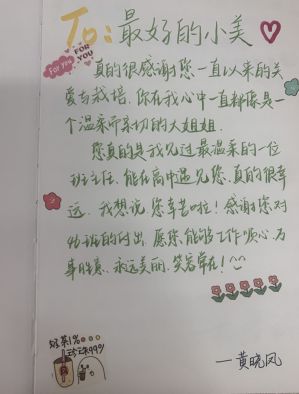 To: 最好的小美
For You
FOR
YOU
真的很感谢您一直以来的关
爱与栽培。你在我心中一直都像是一
个温柔而亲切的大姐姐。
您真的是我见过最温柔的一位
班主任,能在高中遇见您,真的很幸
运。我想说,您辛苦啦!感谢您对
46班的付出,愿您能够工作顺心,万
事胜意,永远美丽,笑容常在!
奶茶1%
珍珠99%
—黄晓凤